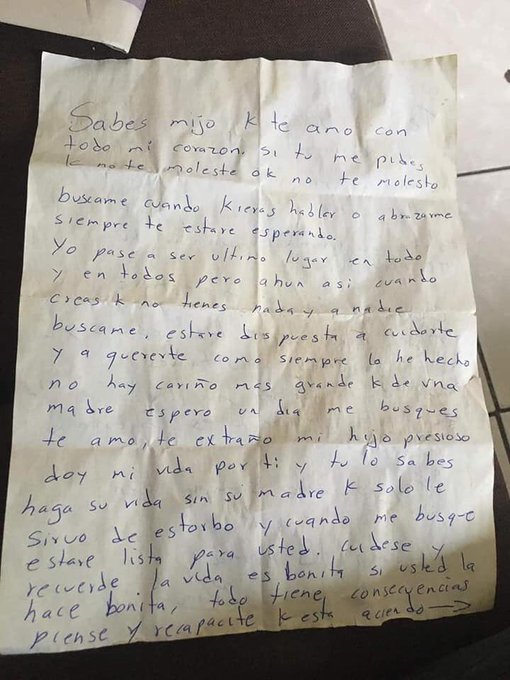 Sabes mijo k te amo con
todo mi corazon, si tu me pides
k no te moleste ok no te molesto
buscame cuando kieras hablar o abrazarme
siempre te estare esperando.
Yo pase a ser ultimo lugar en todo
y en todos pero ahun asi cuando
creas k no tienes nada y a nadie
buscame, estare dispuesta a cuidarte
y a quererte como siempre lo he hecho
no hay cariño mas grande k de una
madre espero un dia me busques
te amo, te extraño mi hijo presioso
doy mi vida por ti y tu lo sabes
haga su vida sin su madre k solo le
sirvo de estorbo y cuando me busque
estare lista para usted. cuidese y
recuerde la vida es bonita si usted la
hace bonita, todo tiene consecuencias
piense y recapacite k esta aciendo →